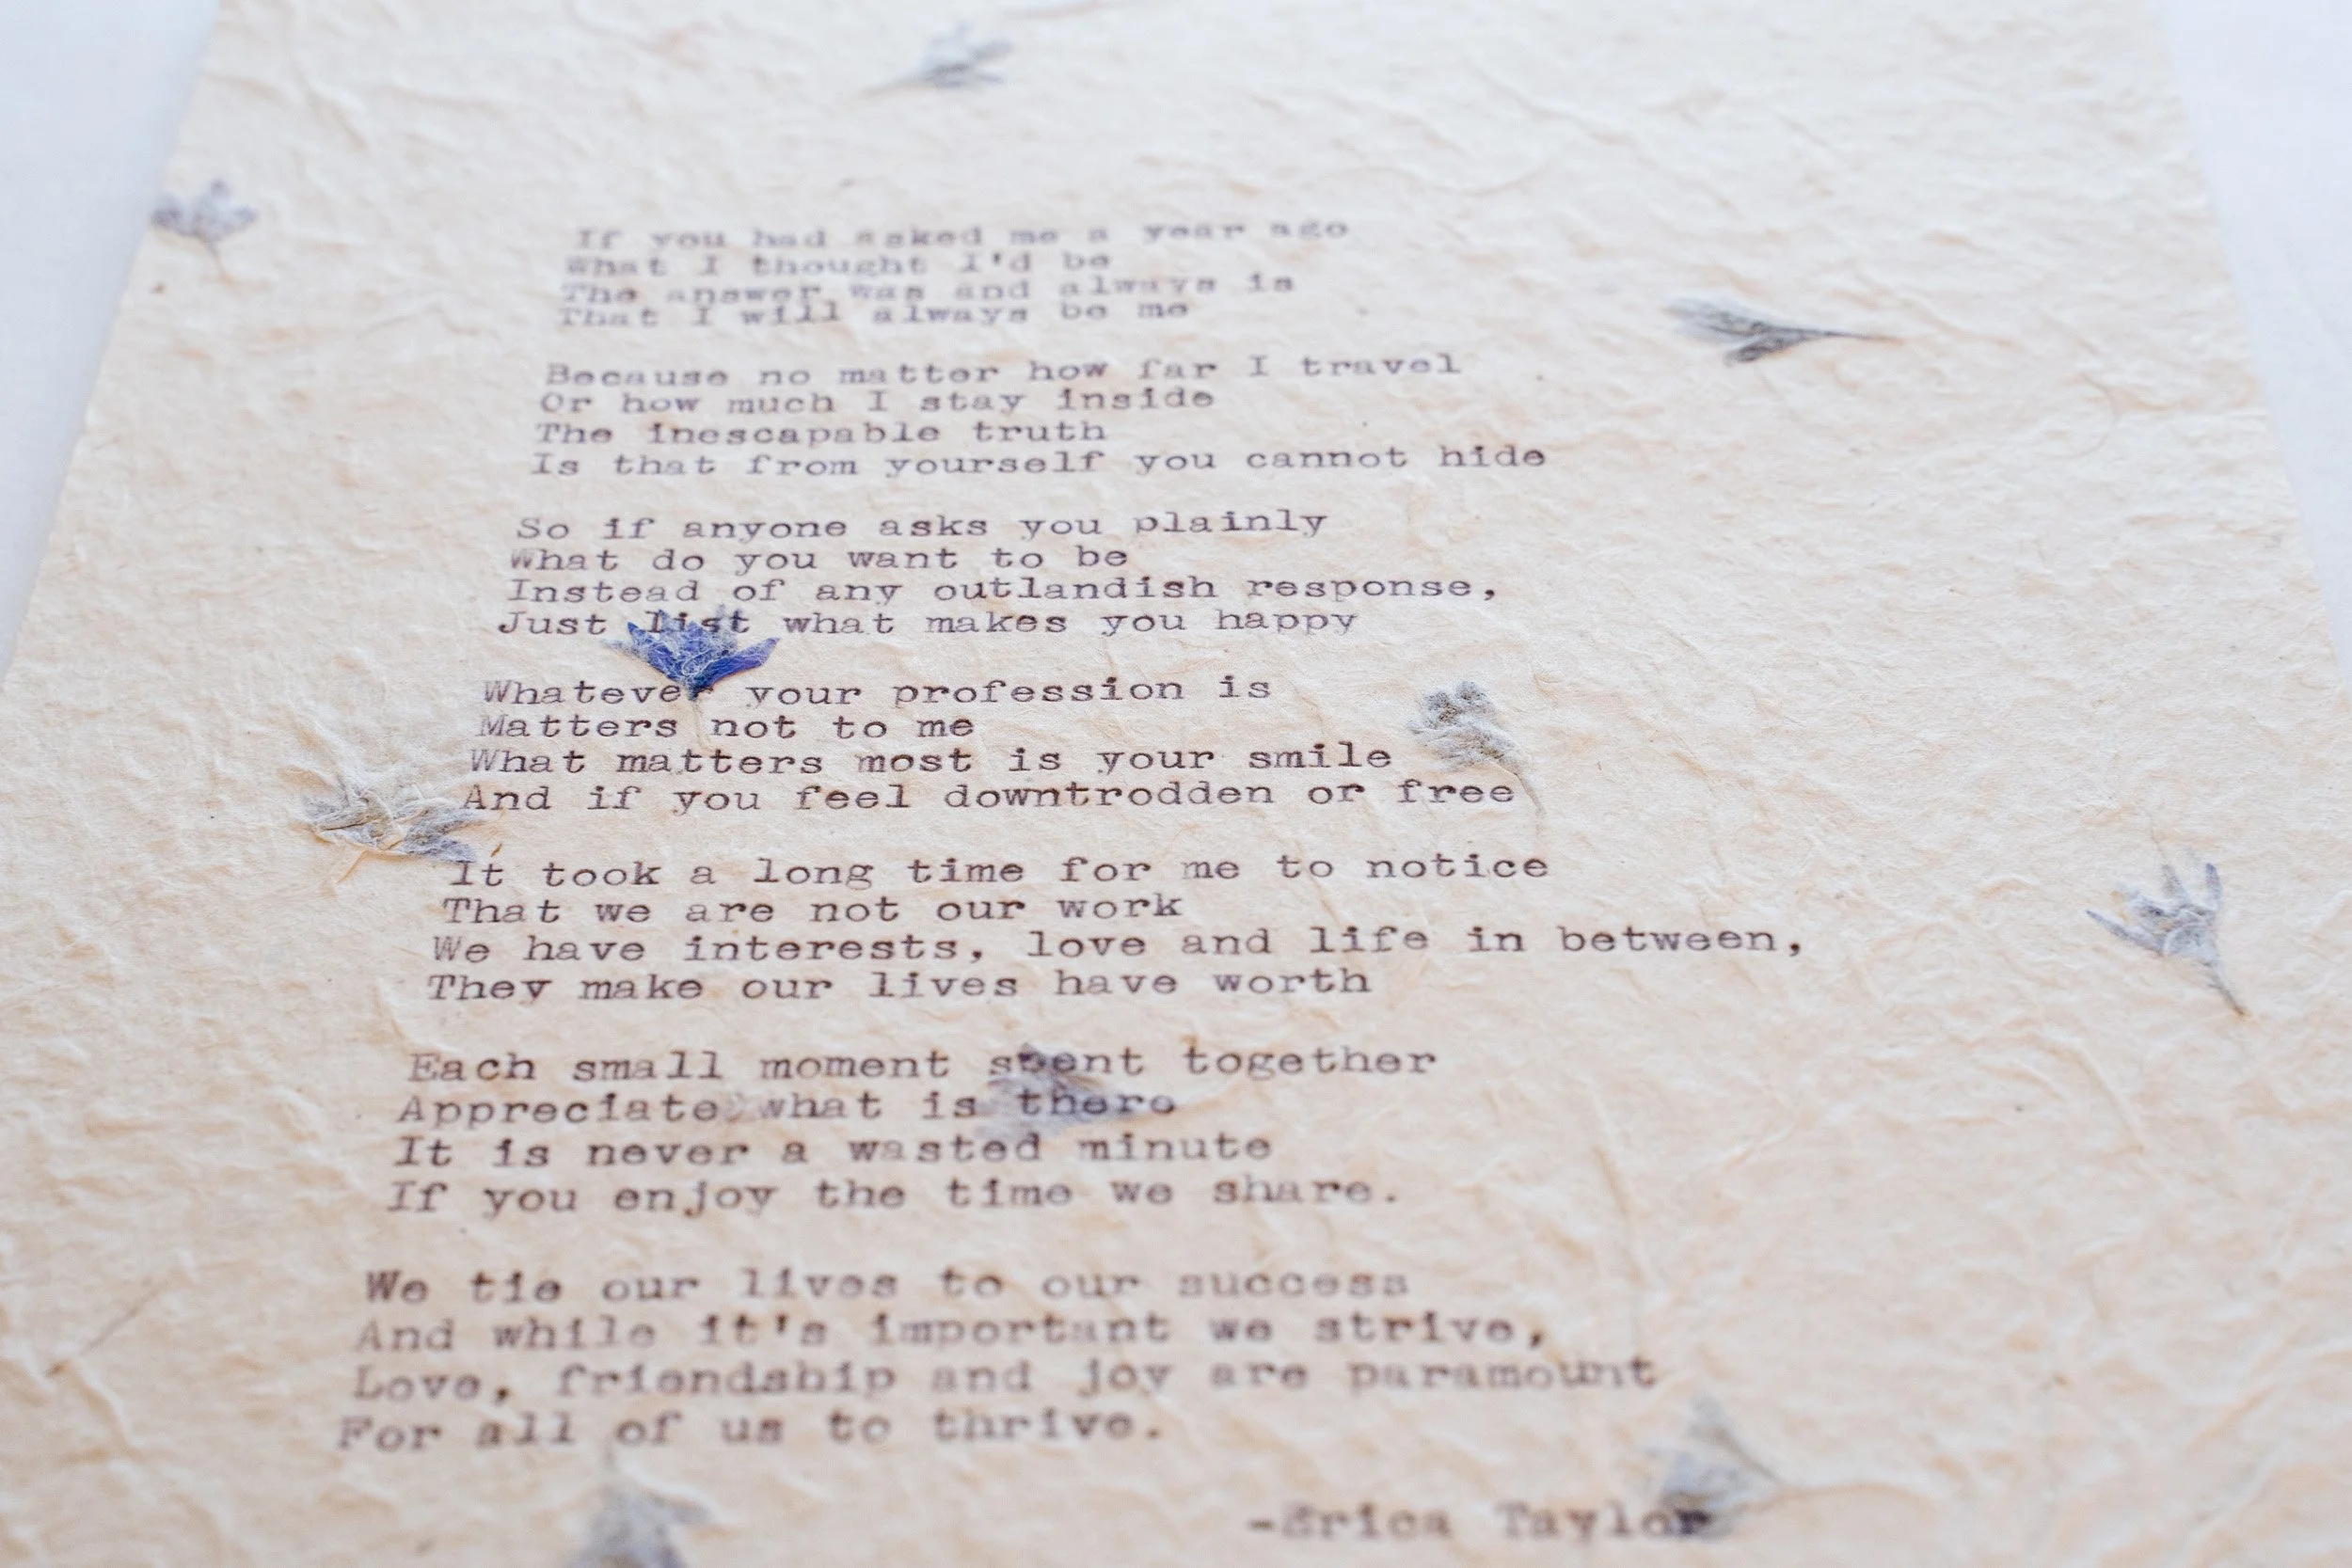 If you had asked me a year ago
What I thought I'd be
The answer was and always is
That I will always be me
Because no matter how far I travel
Or how much I stay inside
The inescapable truth
Is that from yourself you cannot hide
So if anyone asks you plainly
What do you want to be
Instead of any outlandish response,
Just list what makes you happy
Whatever your profession is
Matters not to me
What matters most is your smile
And if you feel downtrodden or free
It took a long time for me to notice
That we are not our work
We have interests, love and life in between,
They make our lives have worth
Each small moment spent together
Appreciate what is there
It is never a wasted minute
If you enjoy the time we share.
We tie our lives to our success
And while it's important we strive,
Love, friendship and joy are paramount
For all of us to thrive.
-Erica Taylor